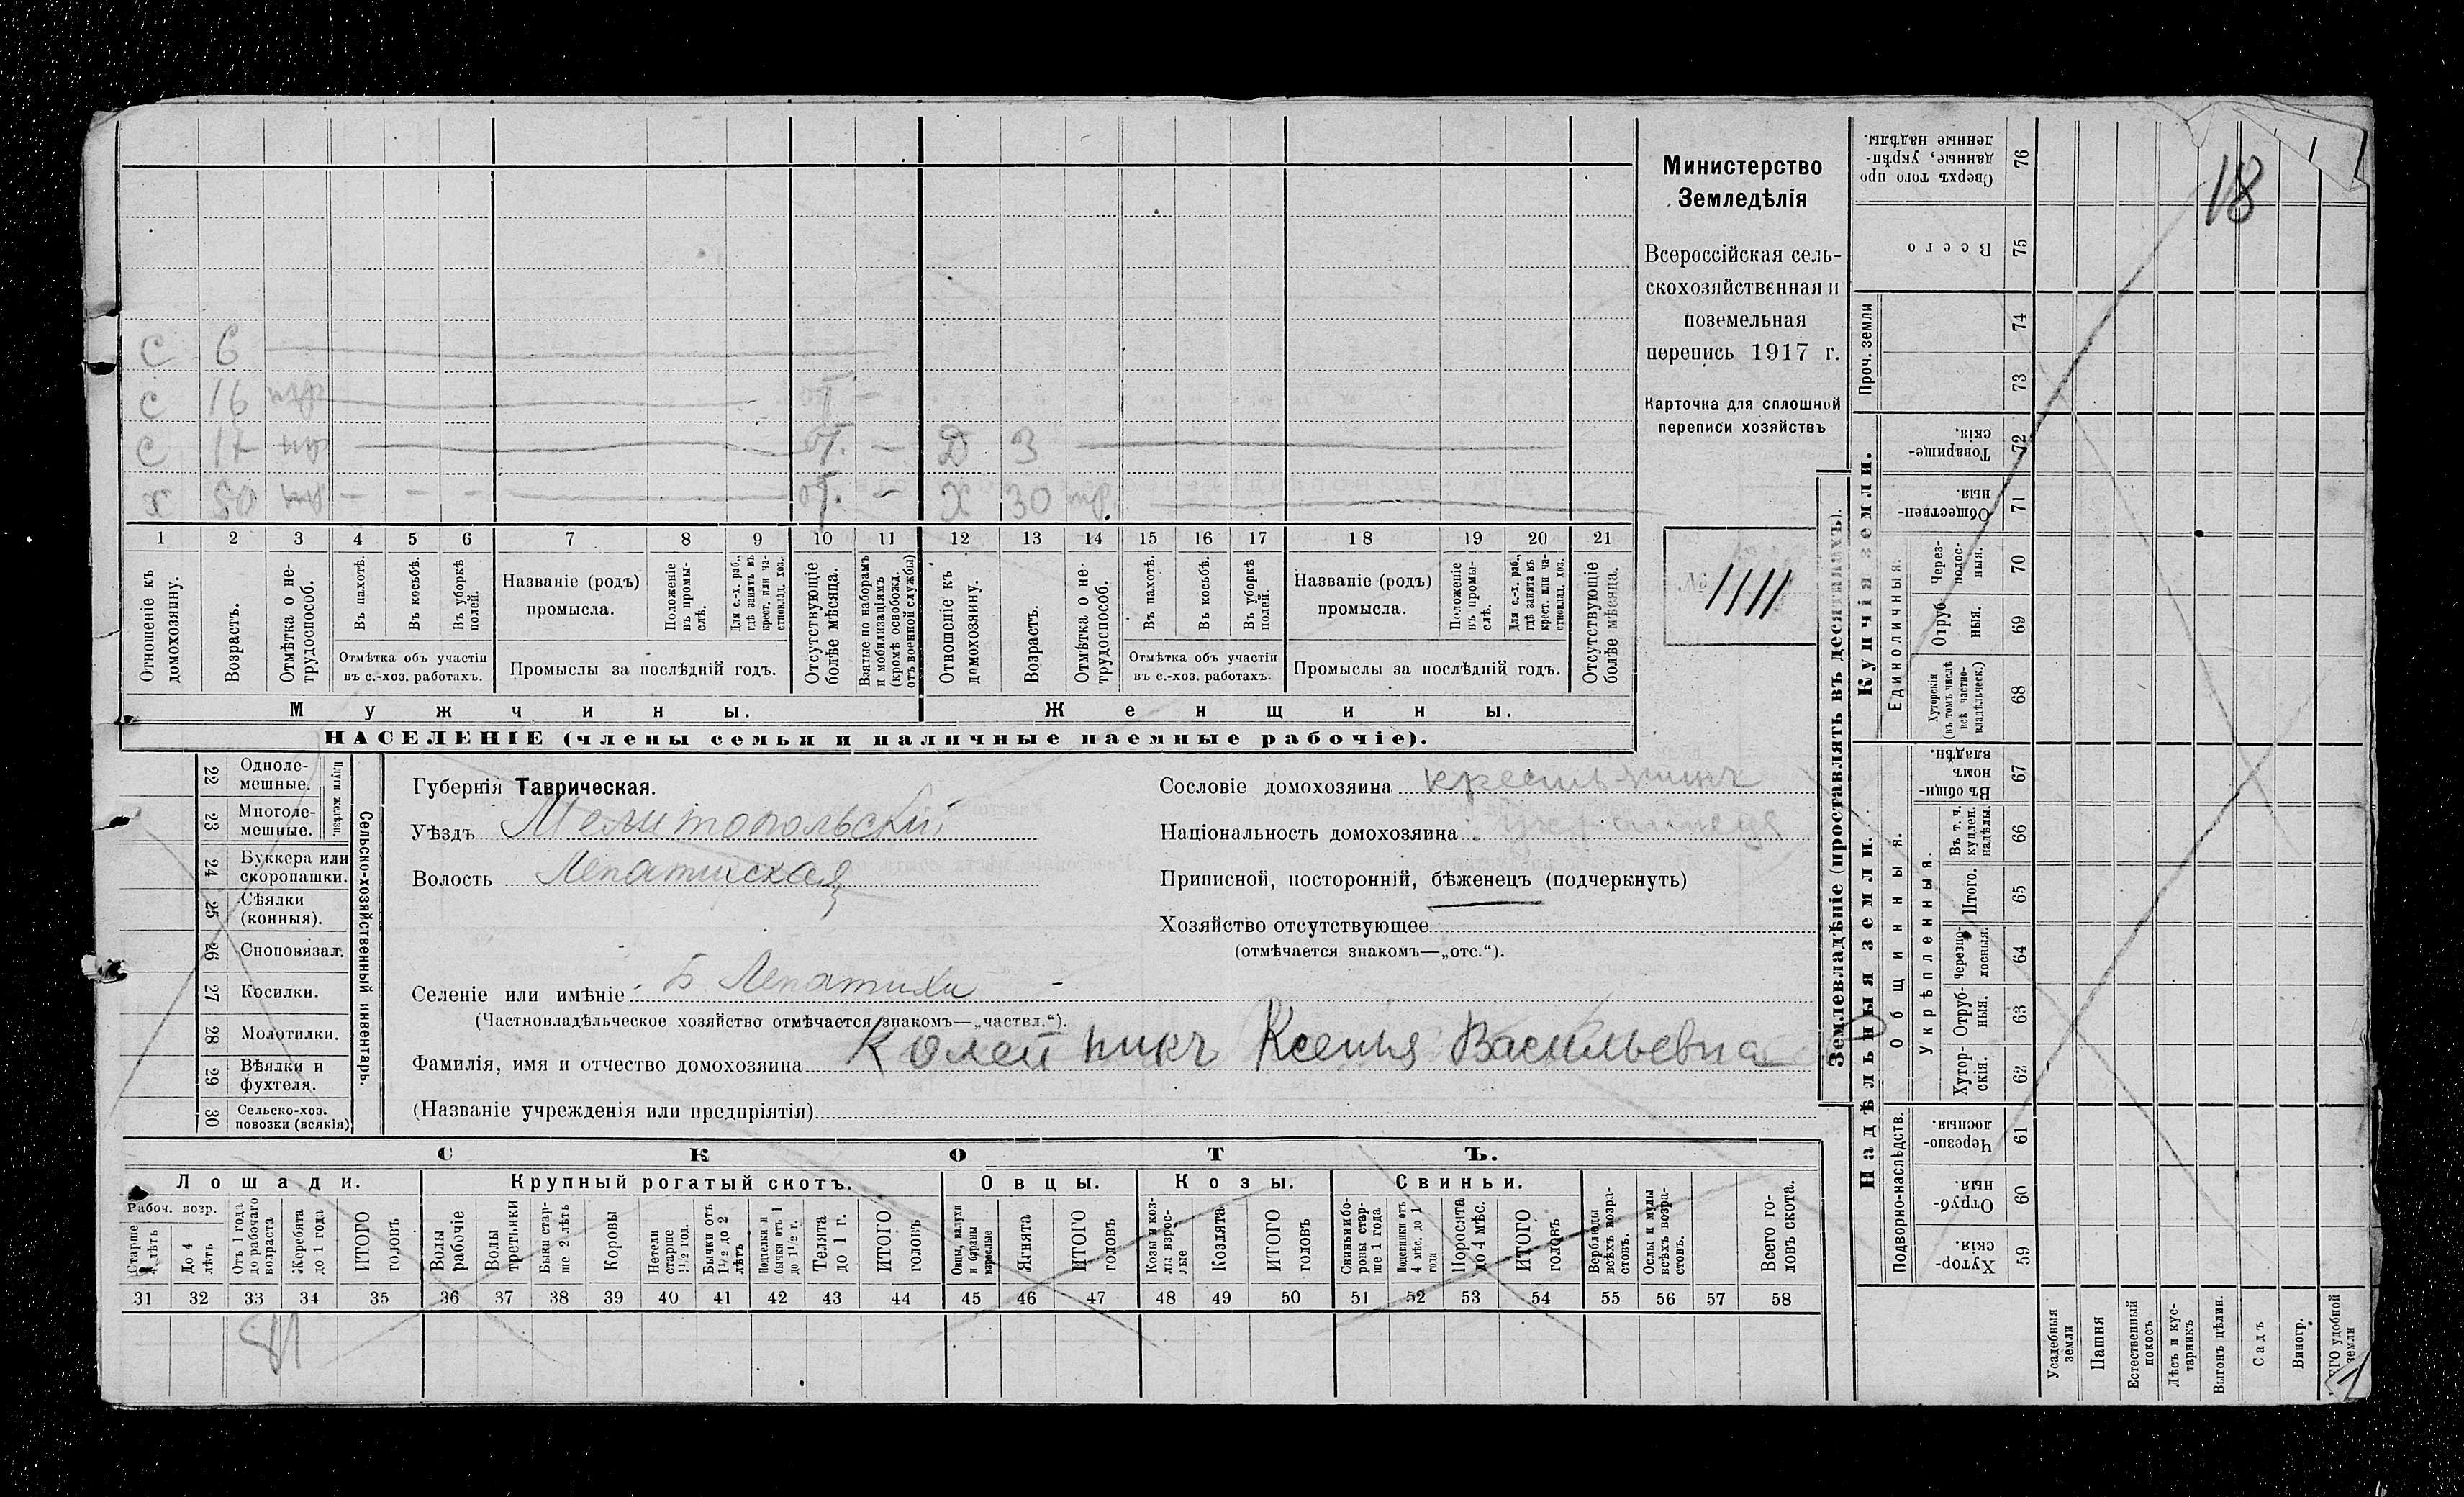 18
Министерство
Земледѣлія
Всероссійская сель-
скохозяйственная и
поземельная
перепись 1917 г.
Карточка для сплошной
переписи хозяйствъ
№ 1111
С 6
С 16
С 17 от. — Д 3
Х 50 — — — от. — Х 30 тр.
1 2 3 4 5 6 7 8 9 10 11 12 13 14 15 16 17 18 19 20 21
Отношеніе къ домохозяину.
Возрастъ.
Отмѣтка о не-трудоспособ.
Въ пахотѣ.
Въ косьбѣ.
Въ уборкѣ полей.
Отмѣтка объ участіи
въ с.-хоз. работахъ.
Названіе (родъ)
промысла.
Положеніе въ промы-слѣ.
Для с.-х. раб., гдѣ занятъ въ крест. или ча-стновлад. хоз.
Промыслы за послѣдній годъ.
Отсутствующіе болѣе мѣсяца.
Взятые по наборамъ и мобилизаціямъ (кромѣ освобожд. отъ военной службы)
Отношеніе къ домохозяину.
Возрастъ.
Отмѣтка о не-трудоспособ.
Въ пахотѣ.
Въ косьбѣ.
Въ уборкѣ полей.
Отмѣтка объ участіи
въ с.-хоз. работахъ.
Названіе (родъ)
промысла.
Положеніе въ промы-слѣ.
Для с.-х. раб., гдѣ занята въ крест. или ча-стновлад. хоз.
Промыслы за послѣдній годъ.
Отсутствующіе болѣе мѣсяца.
Мужчины.
Женщины.
НАСЕЛЕНІЕ (члены семьи и наличные наемные рабочіе).
22 Одноле-мешные.
23 Многоле-мешные.
Плуги желѣзн.
24 Буккера или скоропашки.
25 Сѣялки (конныя).
26 Сноповязал.
27 Косилки.
28 Молотилки.
29 Вѣялки и фухтеля.
30 Сельско-хоз. повозки (всякія)
Сельско-хозяйственный инвентарь.
Губернія Таврическая.
Уѣздъ Мелитопольскій
Волость Лепатихская
Селеніе или имѣніе Б Лепатихи
(Частновладѣльческое хозяйство отмѣчается знакомъ—„частвл.“).
Фамилія, имя и отчество домохозяина Колейникъ Ксенія Васильевна
(Названіе учрежденія или предпріятія)
Сословіе домохозяина крестьянинъ
Національность домохозяина
Приписной, посторонній, бѣженецъ (подчеркнуть)
Хозяйство отсутствующее
(отмѣчается знакомъ—„отс.“).
СКОТЪ.
Лошади.
Крупный рогатый скотъ.
Овцы.
Козы.
Свиньи.
Рабоч. возр.
Старше 4 лѣтъ
До 4 лѣтъ
Отъ 1 года до рабочаго возраста
Жеребята до 1 года
ИТОГО головъ
Волы рабочіе
Волы третьяки
Быки стар-ше 2 лѣтъ
Коровы
Нетели старше 1½ год.
Бычки отъ 1½ до 2 лѣтъ
Подтелки и бычки отъ 1 до 1½ г.
Телята до 1 г.
ИТОГО головъ
Овцы, валухи и бараны взрослые
Ягнята
ИТОГО головъ
Козы и коз-лы взрос-лые
Козлята
ИТОГО головъ
Свиньи и бо-ровы стар-ше 1 года
Подсвинки отъ 4 мѣс. до 1 года
Поросята до 4 мѣс.
ИТОГО головъ
Верблюды всѣхъ возра-стовъ.
Ослы и мулы всѣхъ возра-стовъ.
Всего го-ловъ скота.
31 32 33 34 35 36 37 38 39 40 41 42 43 44 45 46 47 48 49 50 51 52 53 54 55 56 57 58
Землевладѣніе (проставлять въ десятинахъ).
Купчія земли.
Надѣльныя земли.
Проч. земли
Единоличныя.
Общинныя.
Укрѣпленныя.
Подворно-наслѣдств.
Сверхъ того про-данные, укрѣп-ленные надѣлы. 76
Всего 75
74
73
Товарище-скія. 72
Обществен-ныя. 71
Через-полос-ныя. 70
Отруб-ныя. 69
Хуторскія (въ томъ числѣ всѣ частно-владѣльческ.) 68
Въ общи-номъ владѣн. 67
Въ т. ч. куплен. надѣлы. 66
Итого. 65
Черезпо-лосныя. 64
Отруб-ныя. 63
Хутор-скія. 62
Черезпо-лосныя. 61
Отруб-ныя. 60
Хутор-скія. 59
Усадебныя земли
Пашня
Естественный покосъ
Лѣсъ и кус-тарникъ
Выгонъ цѣлин.
Садъ
Виногр.
удобной земли